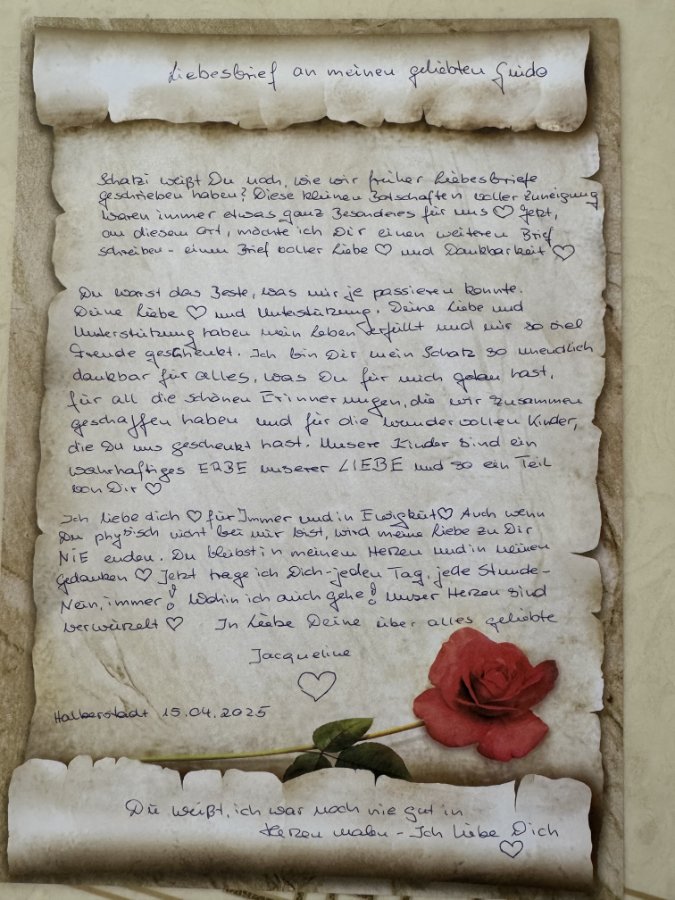 Liebesbrief an meinen geliebten Guido
Schatzi weißt Du noch, wie wir früher Liebesbriefe
geschrieben haben? Diese kleinen Botschaften voller Zuneigung
waren immer etwas ganz Besonderes für uns ♡ Jetzt,
an diesem Ort, möchte ich Dir einen weiteren Brief
schreiben - einen Brief voller Liebe ♡ und Dankbarkeit ♡
Du warst das Beste, was mir je passieren konnte.
Deine Liebe ♡ und Unterstützung. Deine Liebe und
Unterstützung haben mein Leben erfüllt und mir so viel
Freude geschenkt. Ich bin Dir mein Schatz so unendlich
dankbar für alles, was Du für mich getan hast,
für all die schönen Erinnerungen, die wir zusammen
geschaffen haben und für die wundervollen Kinder,
die Du uns geschenkt hast. Unsere Kinder sind ein
wahrhaftiges ERBE unserer LIEBE und so ein Teil
von Dir ♡
Ich liebe dich ♡ für Immer und in Ewigkeit ♡ Auch wenn
Du physisch nicht bei mir bist, wird meine Liebe zu Dir
NIE enden. Du bleibst in meinem Herzen und in meinen
Gedanken ♡ Jetzt trage ich Dich - jeden Tag, jede Stunde -
Nein, immer! Wohin ich auch gehe! Unser Herzen sind
verwurzelt ♡ In Liebe Deine über alles geliebte
Jacqueline
♡
Halberstadt 15.04.2025
Du weißt, ich war noch nie gut in
Herzen malen - Ich liebe Dich
♡